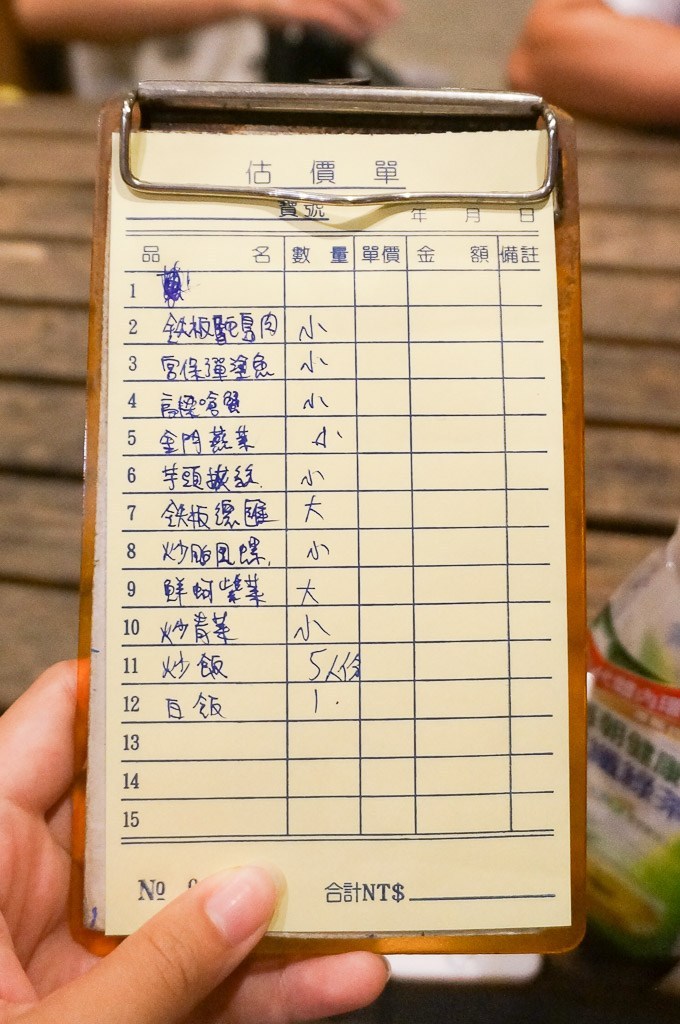 估價單
寶號 年 月 日
品名 數量 單價 金額 備註
1
2 鉄板鴕鳥肉 小
3 宮保彈塗魚 小
4 高梁嗆蟹 小
5 金門蔬菜 小
6 芋頭拔絲 小
7 鉄板總匯 大
8 炒胭凪螺 小
9 鮮蚵紫菜 大
10 炒青菜 小
11 炒飯 5人份
12 白飯 1.
13
14
15
№
合計NT$
健康
綠茶